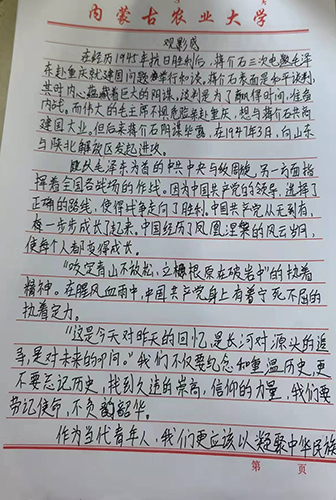 内蒙古农业大学
观影感
在经历1945年抗日胜利后，蒋介石三次电邀毛泽
东赴重庆就建国问题举行和谈，蒋介石表面是和平谈判，
其实内心蕴藏着巨大的阴谋。谈判是为了赢得时间，准备
内战，而伟大的毛主席不惧危险亲赴重庆，想与蒋介石共商
建国大业，但后来蒋介石阴谋毕露，在1947年3月，向山东
与陕北解放区发起进攻。
以毛泽东为首的中共中央与敌周旋，另一方面指
挥着全国各战场的作战。因为中国共产党的领导，选择了
正确的路线，使得战争走向了胜利。中国共产党从无到有，
一步步成长了起来，中国经历了凤凰涅槃的风云岁月，
使每个人都变得成长。
“咬定青山不放松，立根原在破岩中”的执着
精神。在腥风血雨中，中国共产党身上有着宁死不屈的
执着定力。
“这是今天对昨天的回忆，是长河对源头的追
寻，是对未来的叩问。”我们不仅要纪念和重温历史，更
不要忘记历史，找到久违的崇高，信仰的力量，我们要
牢记使命，不负韶华。
作为当代青年人，我们更应该以凝聚中华民族
第 页